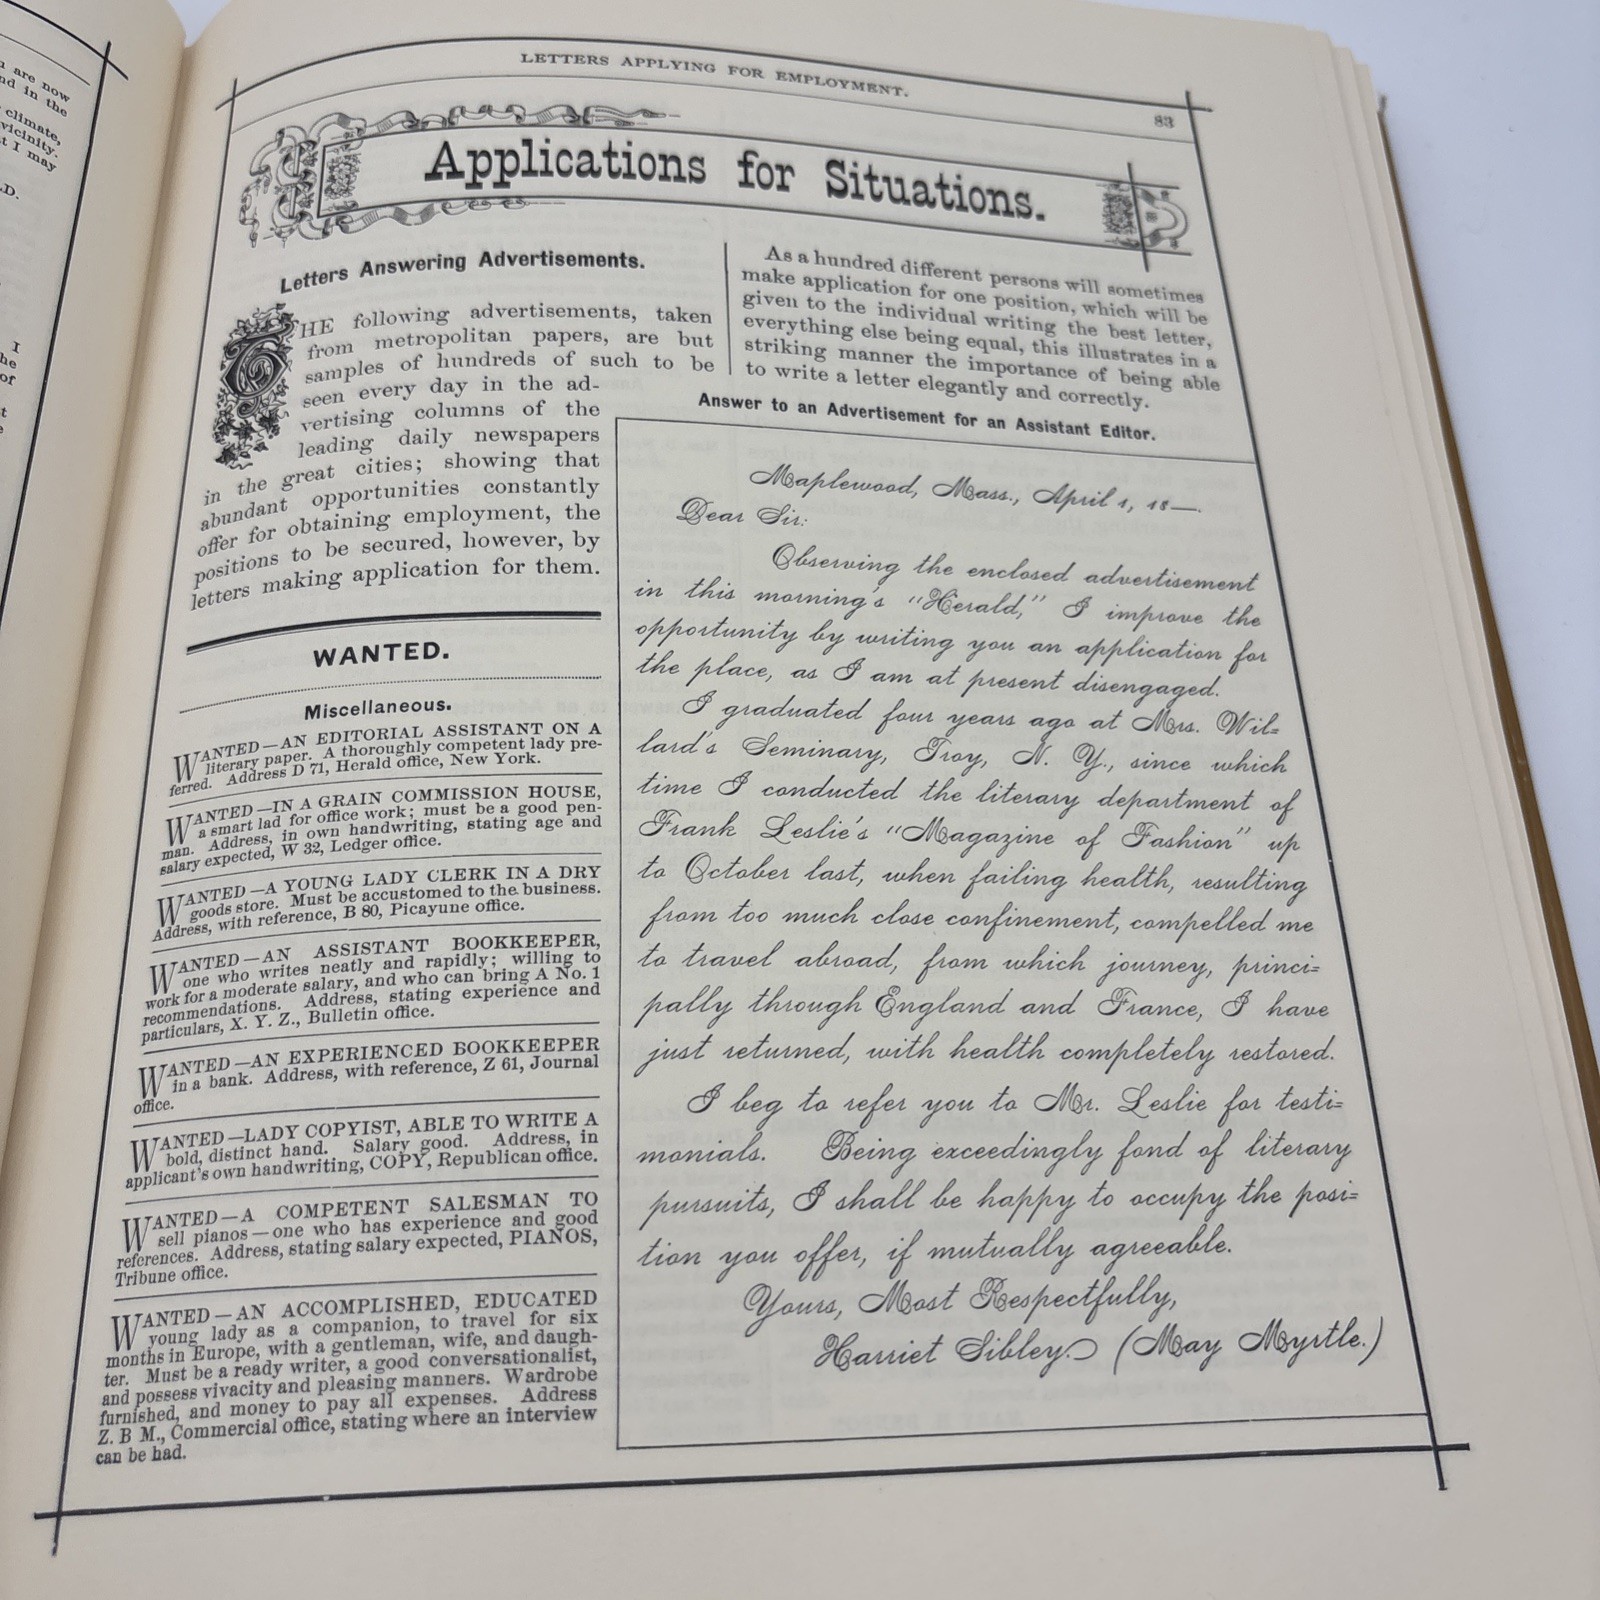 u are now
nd in the
climate,
vicinity.
t I may
.D.
I
he
of
t
e
LETTERS APPLYING FOR EMPLOYMENT.
83
Applications for Situations.
Letters Answering Advertisements.
THE following advertisements, taken
from metropolitan papers, are but
samples of hundreds of such to be
seen every day in the ad-
vertising columns of the
leading daily newspapers
in the great cities; showing that
abundant opportunities constantly
offer for obtaining employment, the
positions to be secured, however, by
letters making application for them.
WANTED.
Miscellaneous.
WANTED—AN EDITORIAL ASSISTANT ON A
literary paper. A thoroughly competent lady pre-
ferred. Address D 71, Herald office, New York.
WANTED—IN A GRAIN COMMISSION HOUSE,
a smart lad for office work; must be a good pen-
man. Address, in own handwriting, stating age and
salary expected, W 32, Ledger office.
WANTED—A YOUNG LADY CLERK IN A DRY
goods store. Must be accustomed to the business.
Address, with reference, B 80, Picayune office.
WANTED—AN ASSISTANT BOOKKEEPER,
one who writes neatly and rapidly; willing to
work for a moderate salary, and who can bring A No. 1
recommendations. Address, stating experience and
particulars, X. Y. Z., Bulletin office.
WANTED—AN EXPERIENCED BOOKKEEPER
in a bank. Address, with reference, Z 61, Journal
office.
WANTED—LADY COPYIST, ABLE TO WRITE A
bold, distinct hand. Salary good. Address, in
applicant's own handwriting, COPY, Republican office.
WANTED—A COMPETENT SALESMAN TO
sell pianos—one who has experience and good
references. Address, stating salary expected, PIANOS,
Tribune office.
WANTED—AN ACCOMPLISHED, EDUCATED
young lady as a companion, to travel for six
months in Europe, with a gentleman, wife, and daugh-
ter. Must be a ready writer, a good conversationalist,
and possess vivacity and pleasing manners. Wardrobe
furnished, and money to pay all expenses. Address
Z. B M., Commercial office, stating where an interview
can be had.
As a hundred different persons will sometimes
make application for one position, which will be
given to the individual writing the best letter,
everything else being equal, this illustrates in a
striking manner the importance of being able
to write a letter elegantly and correctly.
Answer to an Advertisement for an Assistant Editor.
Maplewood, Mass., April 1, 18—.
Dear Sir:
Observing the enclosed advertisement
in this morning's "Herald," I improve the
opportunity by writing you an application for
the place, as I am at present disengaged.
I graduated four years ago at Mrs. Wil=
lard's Seminary, Troy, N. Y., since which
time I conducted the literary department of
Frank Leslie's "Magazine of Fashion" up
to October last, when failing health, resulting
from too much close confinement, compelled me
to travel abroad, from which journey, princi=
pally through England and France, I have
just returned, with health completely restored.
I beg to refer you to Mr. Leslie for testi=
monials. Being exceedingly fond of literary
pursuits, I shall be happy to occupy the posi=
tion you offer, if mutually agreeable.
Yours, Most Respectfully,
Harriet Sibley. (May Myrtle.)